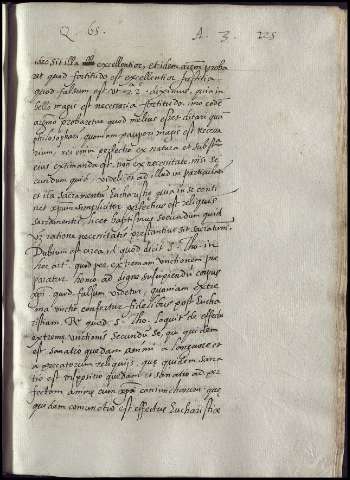 Q. 65. A. 3. 225
sit illa excellentior, et idem proba
ret quod fortitudo est excellentior justitia
quod falsum est ut 2. 2. diximus, quia in
bello magis est necessaria fortitudo. imo eodē
probaretur quod melius esset ditari quā
philosophari, quoniam pauperi magis est necessa
rium, rei enim perfectio ex natura et substā
cia extimanda est non ex necesitate nisi se
cundum quid, videlicet ad illud in particulari
et ita sacramentū Eucharistiæ quia in se conti
net xpum simpliciter perfectius est reliquis
sacramentis licet baptismus secundum quid
ratione necesitatis prestantius sit
Dubium est circa id quod dicit S. Tho. in
hoc art. quod per extremam unctionem præ
paratur homo ad digne suscipiendū corpus
xpi quod falsum videtur, quoniam extre
ma unctio confertur fidelibus post Eucha
ristiam. R. quod S. Tho. loquitur de effectu
extremæ unctionis secundū se, qui quidem
est sanatio quædam animi a languore et
a peccatorum reliquijs, quæ quidem sana
tio est dispositio quædam et sanatio ad per
fectam animæ cum xpo coniunctionem quæ
quidem est effectus Eucharistiæ